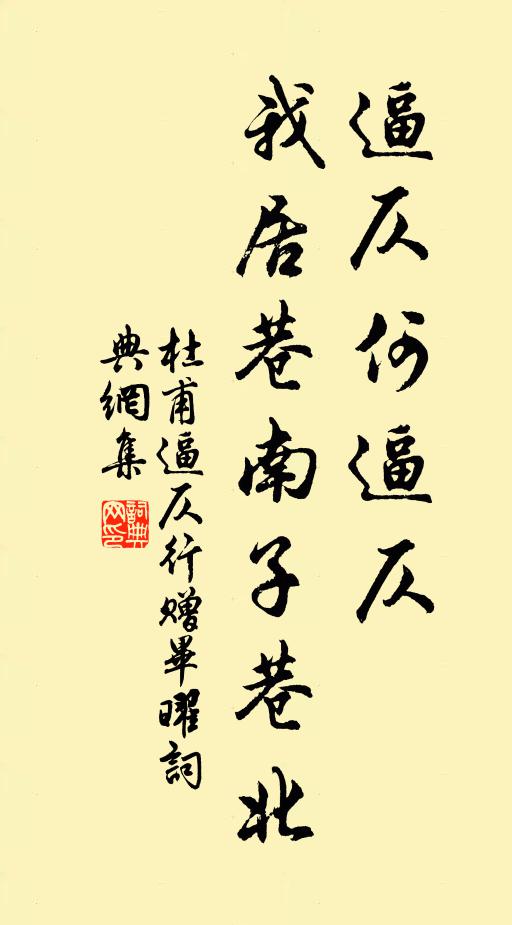 逼仄何逼仄
我居巷南子巷北
杜甫逼仄行贈畢曜詞
典網集
詞典
网印